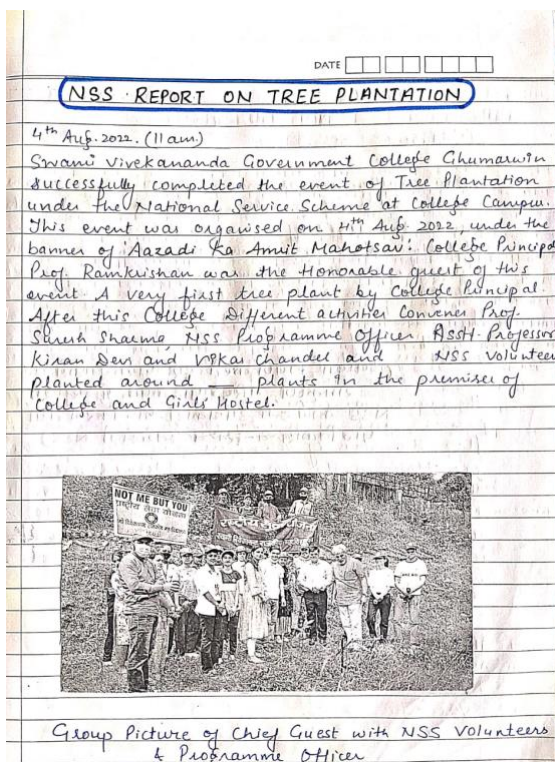 DATE
NSS REPORT ON TREE PLANTATION
4th Aug. 2022. (11 am.)
Swami Vivekananda Government College Ghumarwin
successfully completed the event of Tree Plantation
under the National Service Scheme at College Campus.
This event was organised on 4th Aug. 2022 under the
banner of 'Aazadi Ka Amrit Mahotsav'. College Principal
Prof. Ramkrishan was the Honorable guest of this
event. A very first tree plant by College Principal.
After this College Different activities Convener Prof.
Suresh Sharma, NSS Programme Officer, Asstt. Professor
Kiran Devi and Vikas Chandel and NSS Volunteer
planted around — plants in the premises of
College and Girls Hostel.
NOT ME BUT YOU
राष्ट्रीय सेवा योजना
Group Picture of Chief Guest with NSS Volunteers
& Programme Officer